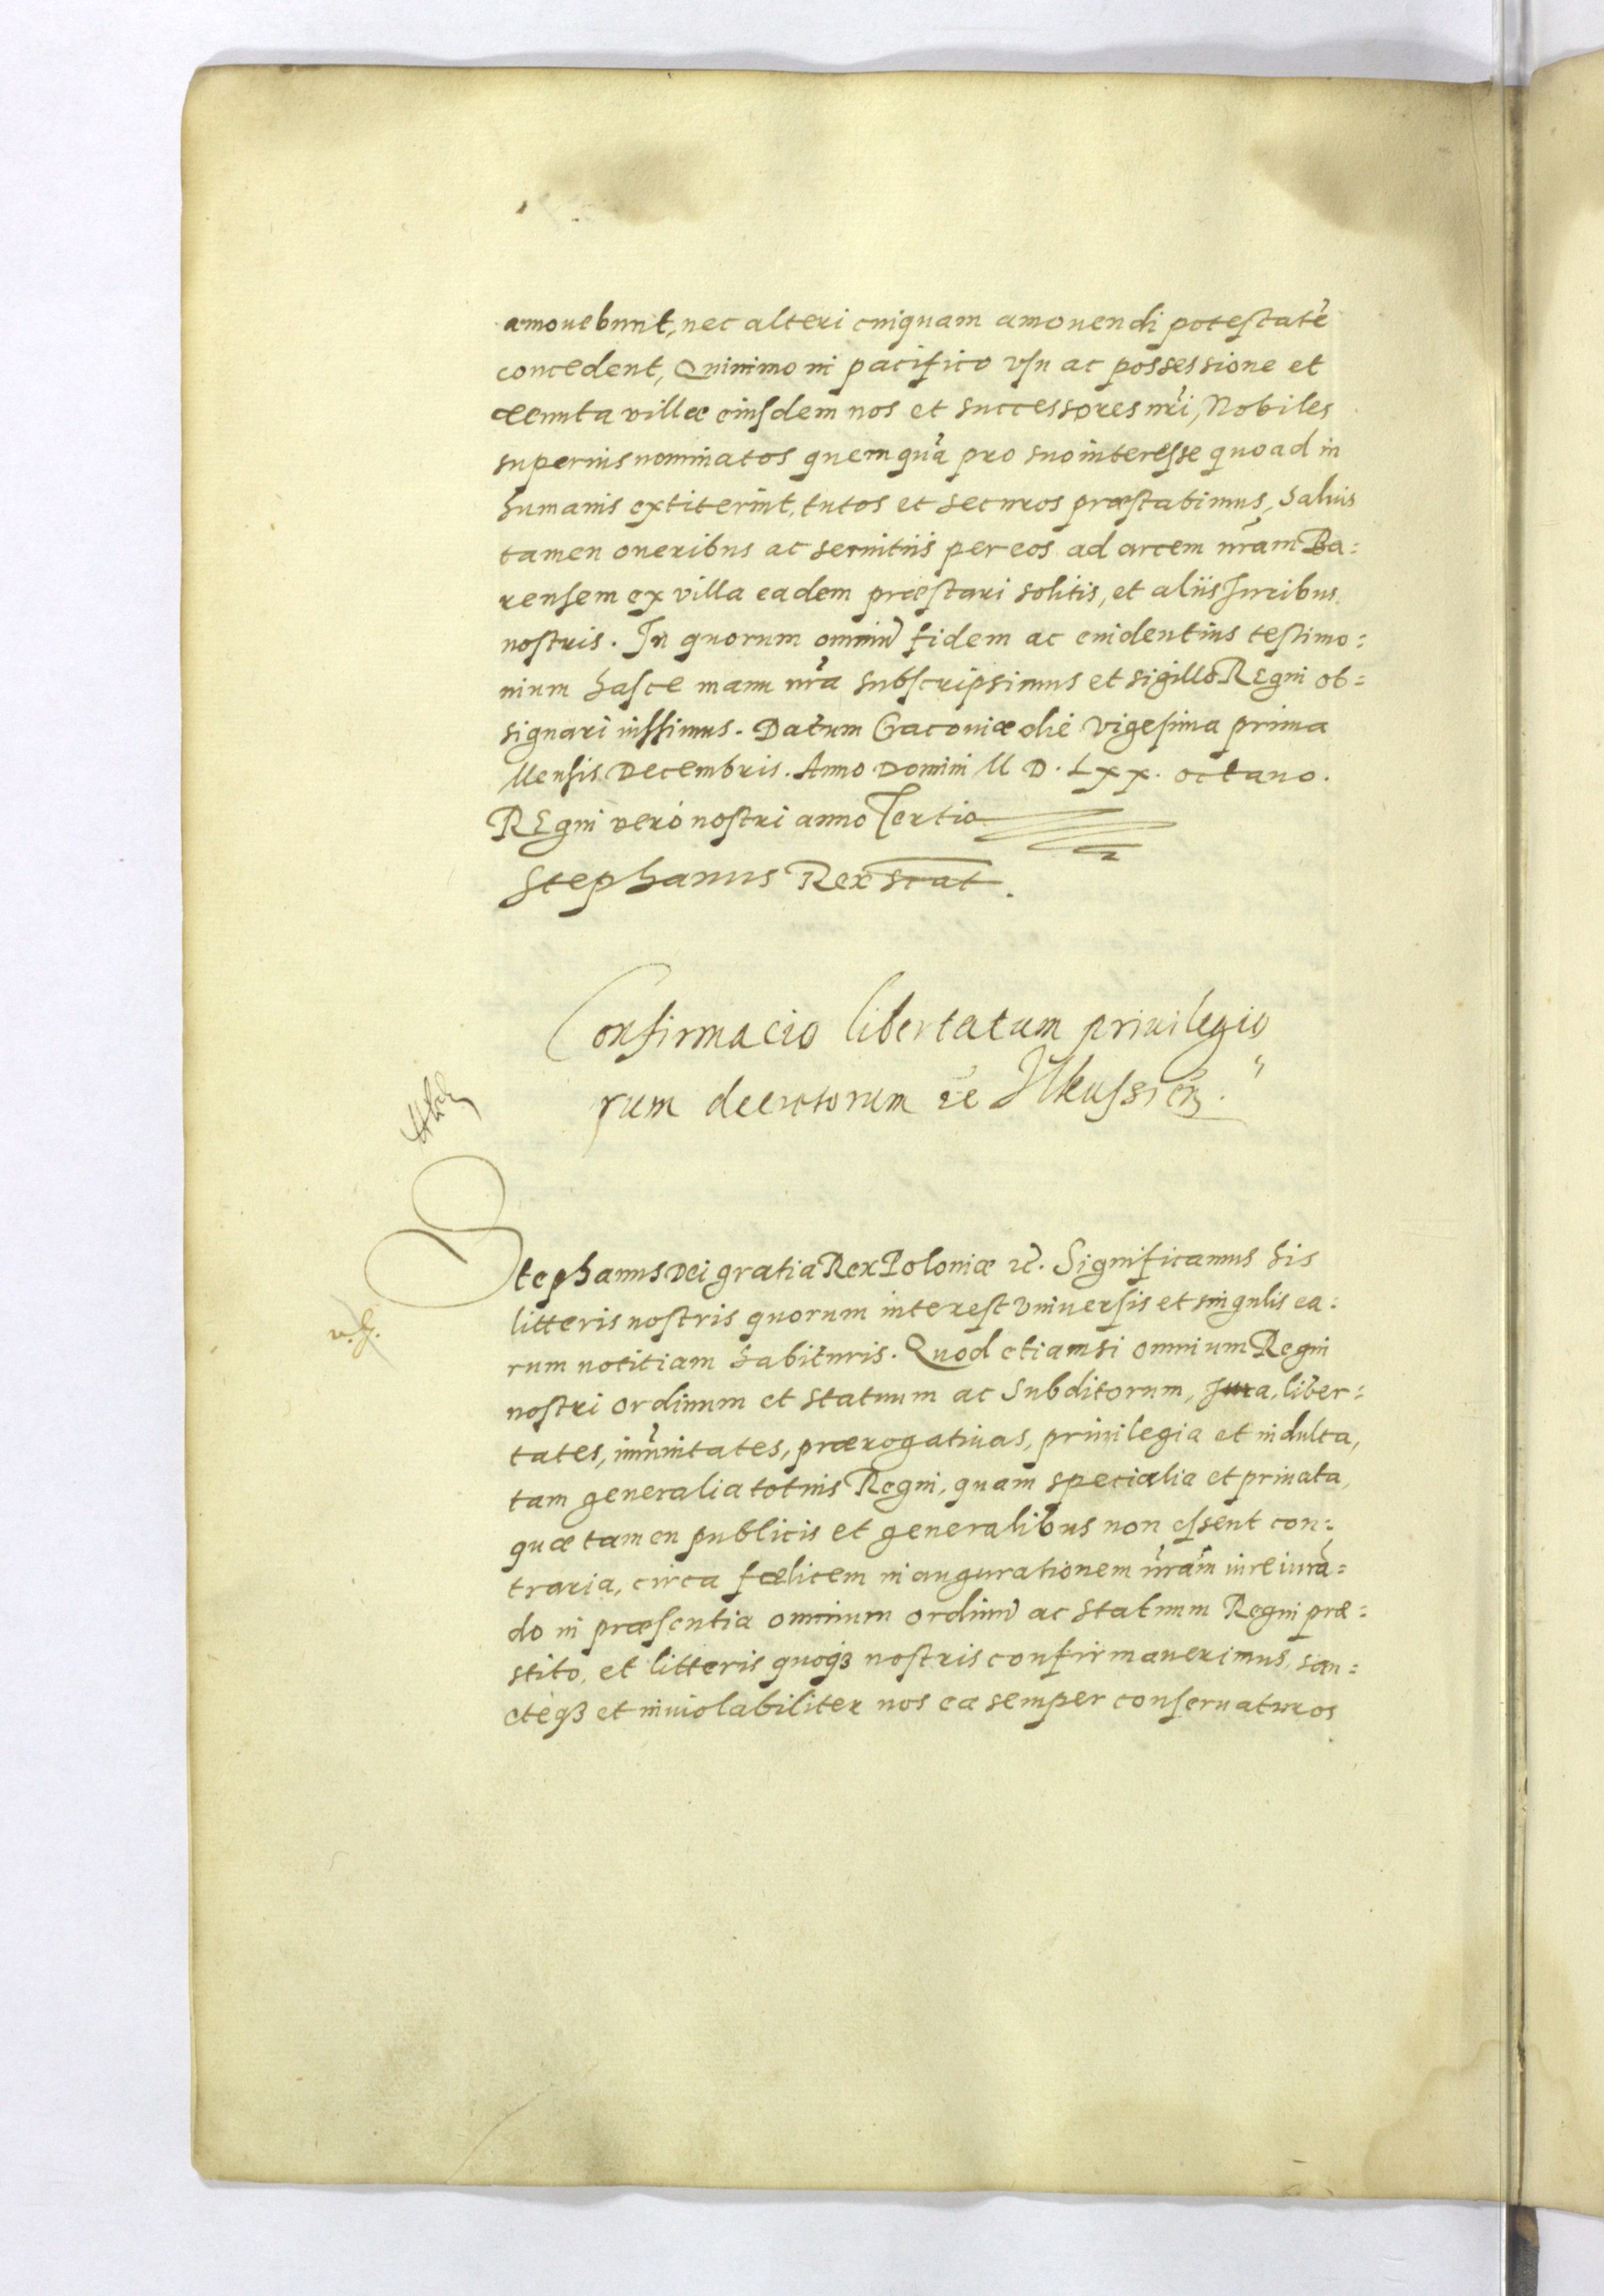 amouebunt, nec alteri cuiquam amouendi potestatẽ
concedent, Quinimo in pacifico vsu ac possessione et
villæ eiusdem nos et successores nr̃i, Nobiles
superius nominatos quemquã pro suo interesse quoad in
humanis extiterint, tutos et securos præstabimus, Saluis
tamen oneribus ac seruitiis per eos ad arcem nr̃am Ba:
rensem ex villa eadem præstari solitis, et aliis Juribus
nostris. In quorum omniũ fidem ac euidentius testimo:
nium hasce manu nr̃a subscripsimus et sigillo Regni ob:
signari iussimus. Datum Cracouiæ die vigesima prima
Mensis Decembris. Anno Domini M D. Lxx. octauo.
Regni veró nostri anno Tertio
Stephanus Rex sc̃at.
Confirmacio libertatum priuilegio
rum decretorum ꝛc Ilkussieñ.
Stephanus Dei gratia Rex Poloniæ ꝛc̃. Significamus his
litteris nostris quorum interest vniuersis et singulis ea:
rum notitiam habituris. Quod etiamsi omnium Regni
nostri ordinum et statuum ac subditorum, Jura, liber:
tates, imũnitates, prærogatiuas, priuilegia et indulta,
tam generalia totius Regni, quam specialia et priuata,
quæ tamen publicis et generalibus non essent con:
traria, circa fœlicem inaugurationem nr̃am iureiurã:
do in præsentia omnium ordinũ ac statuum Regni præ:
stito, et litteris quoqꝫ nostris confirmauerimus, san:
ctèqꝫ et inuiolabiliter nos ea semper conseruaturos